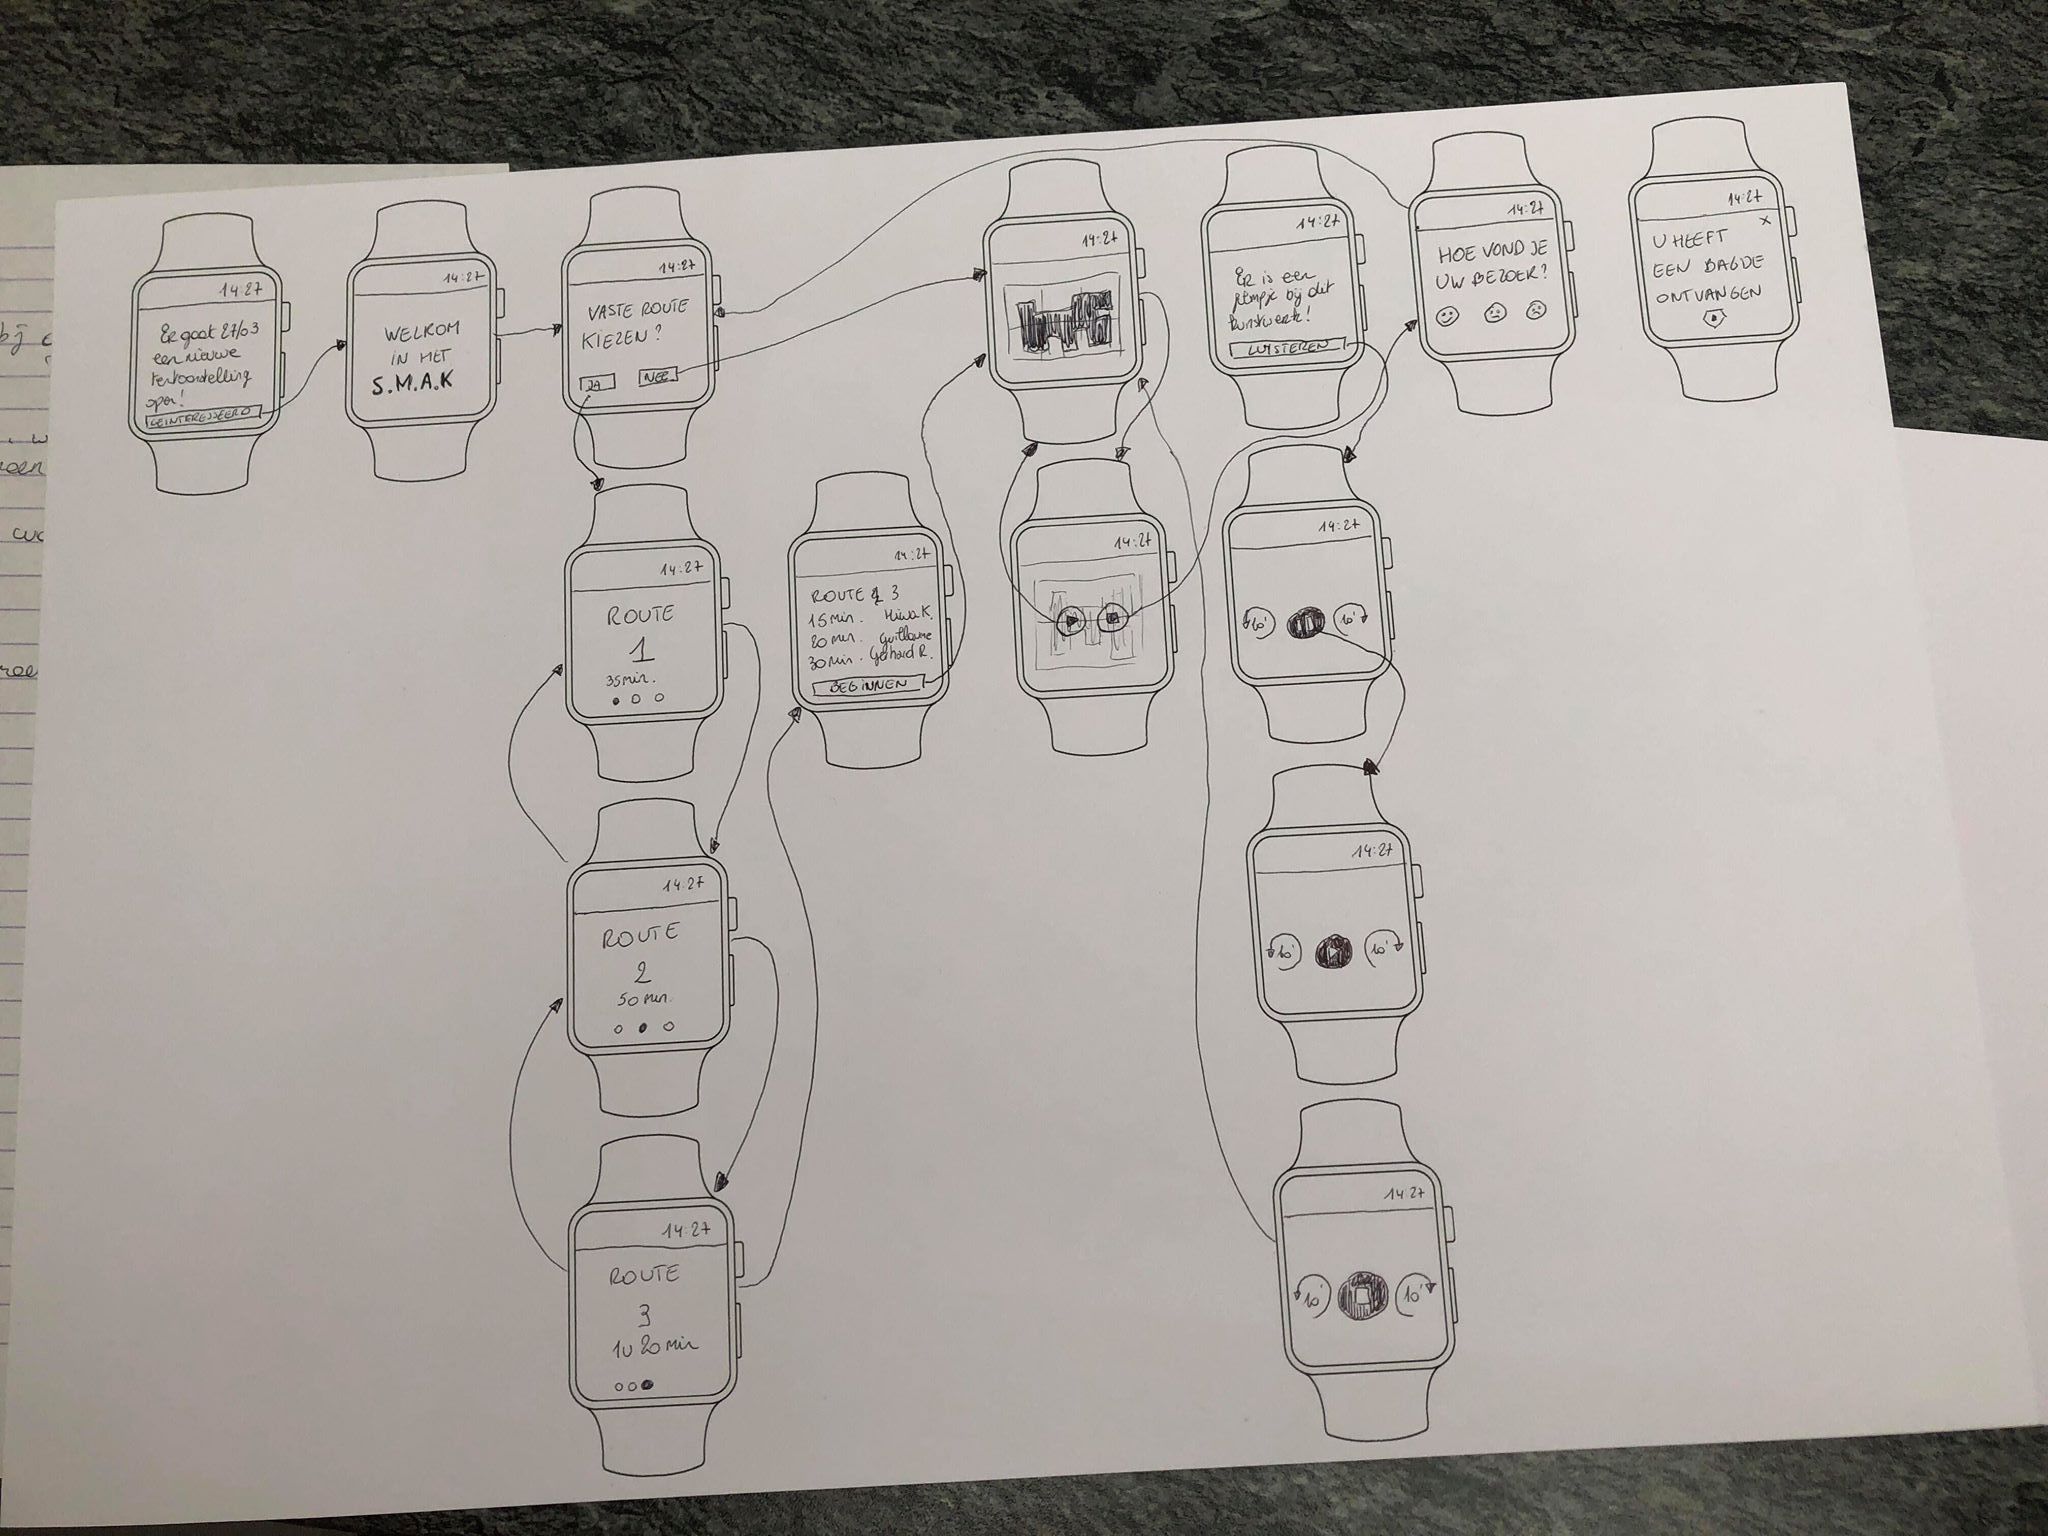 14:27
Er gaat 27/03
een nieuwe
tentoonstelling
open!
GEINTERESSEERD
14:27
WELKOM
IN HET
S.M.A.K
14:27
VASTE ROUTE
KIEZEN?
JA NEE
14:27
14:27
Er is een
filmpje bij dit
kunstwerk!
LUISTEREN
14:27
HOE VOND JE
UW BEZOEK?
14:27
X
U HEEFT
EEN BAGDE
ONTVANGEN
14:27
ROUTE
1
35min.
14:27
ROUTE 3
15min. Hiwa K.
20min. Guillaume
30min. Gerhard R.
BEGINNEN
14:27
14:27
10' 10'
14:27
ROUTE
2
50min.
14:27
10' 10'
14:27
ROUTE
3
1u 20min
14:27
10' 10'
bij